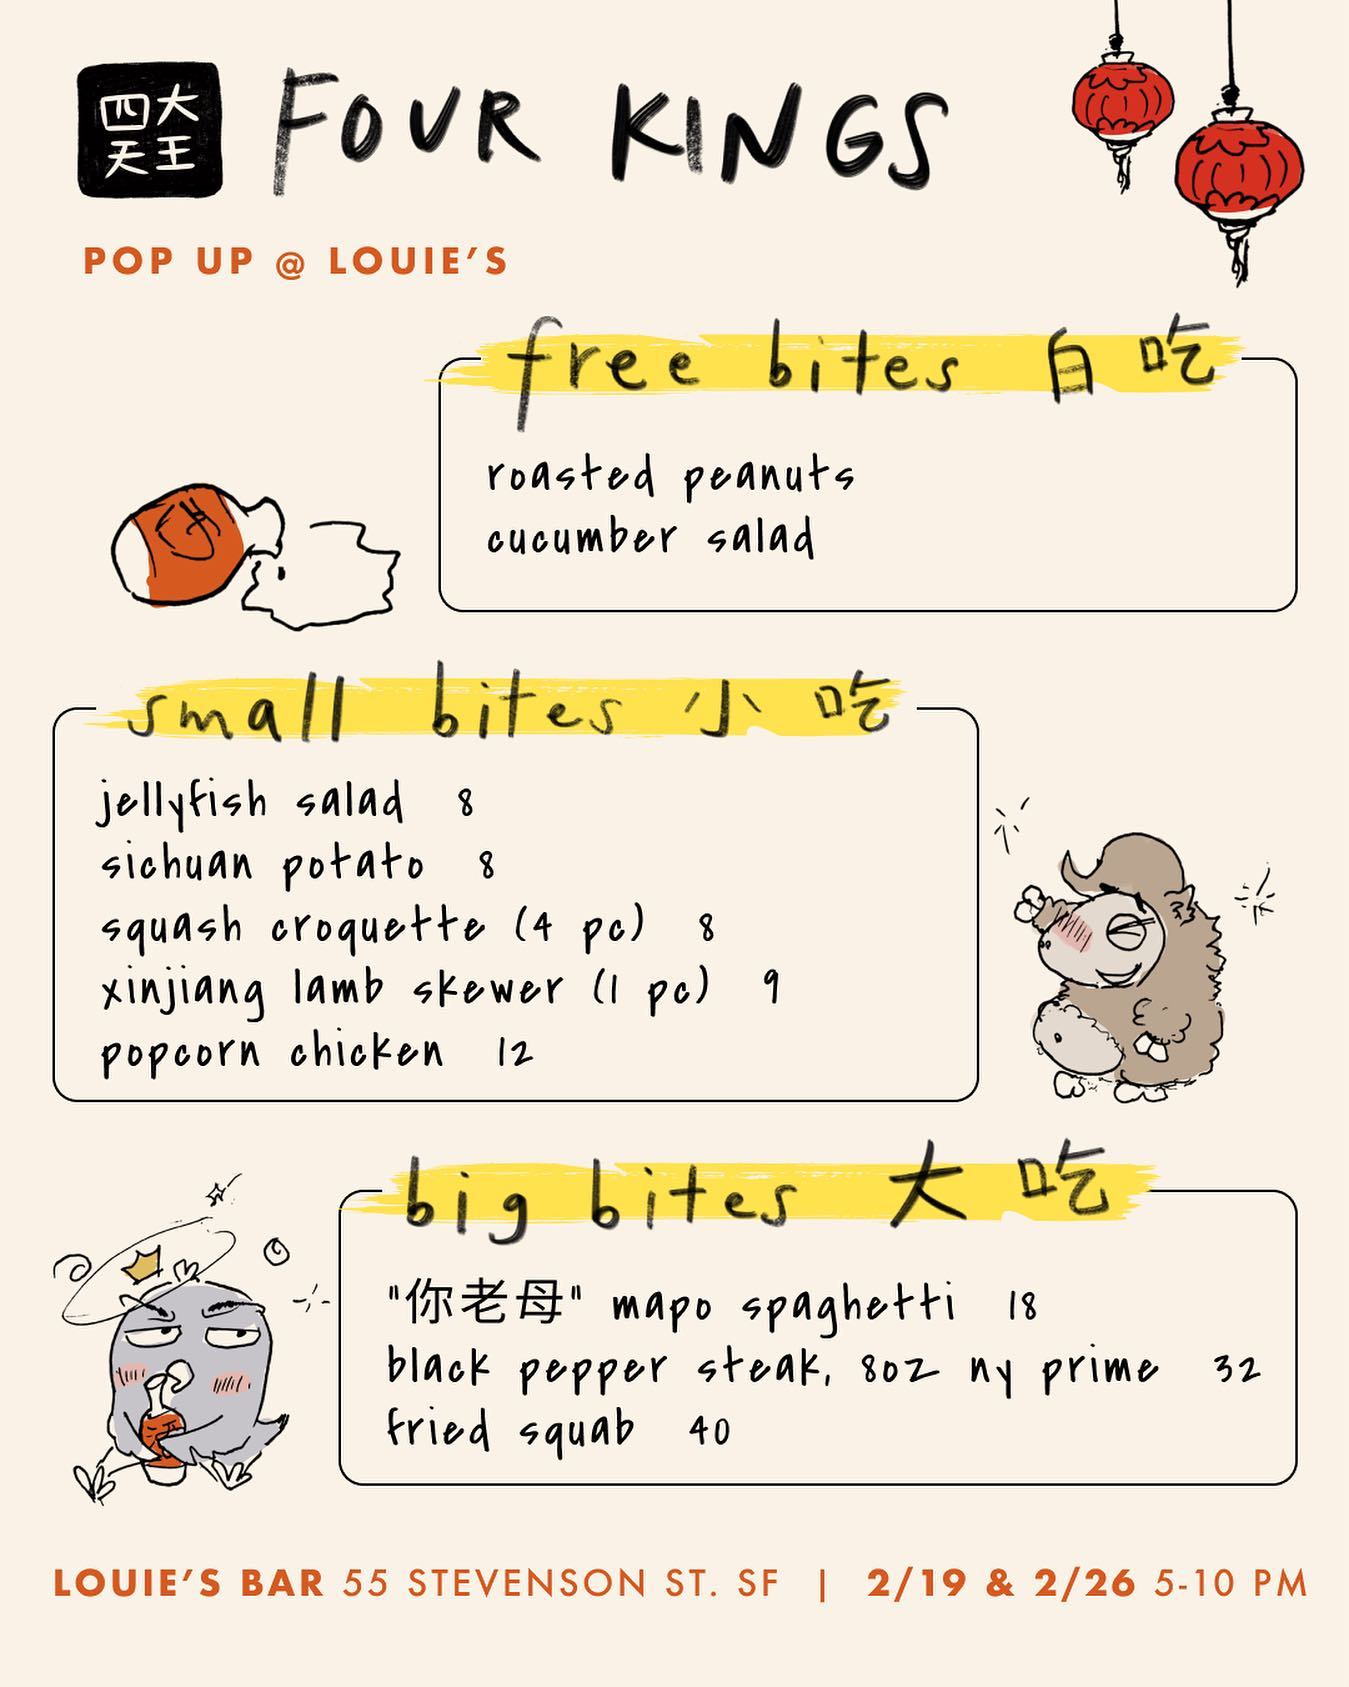 四大
天王
FOUR KINGS
POP UP @ LOUIE'S
free bites 白吃
roasted peanuts
cucumber salad
small bites 小吃
jellyfish salad 8
sichuan potato 8
squash croquette (4 pc) 8
xinjiang lamb skewer (1 pc) 9
popcorn chicken 12
big bites 大吃
"你老母" mapo spaghetti 18
black pepper steak, 8oz ny prime 32
fried squab 40
LOUIE'S BAR 55 STEVENSON ST. SF | 2/19 & 2/26 5-10 PM